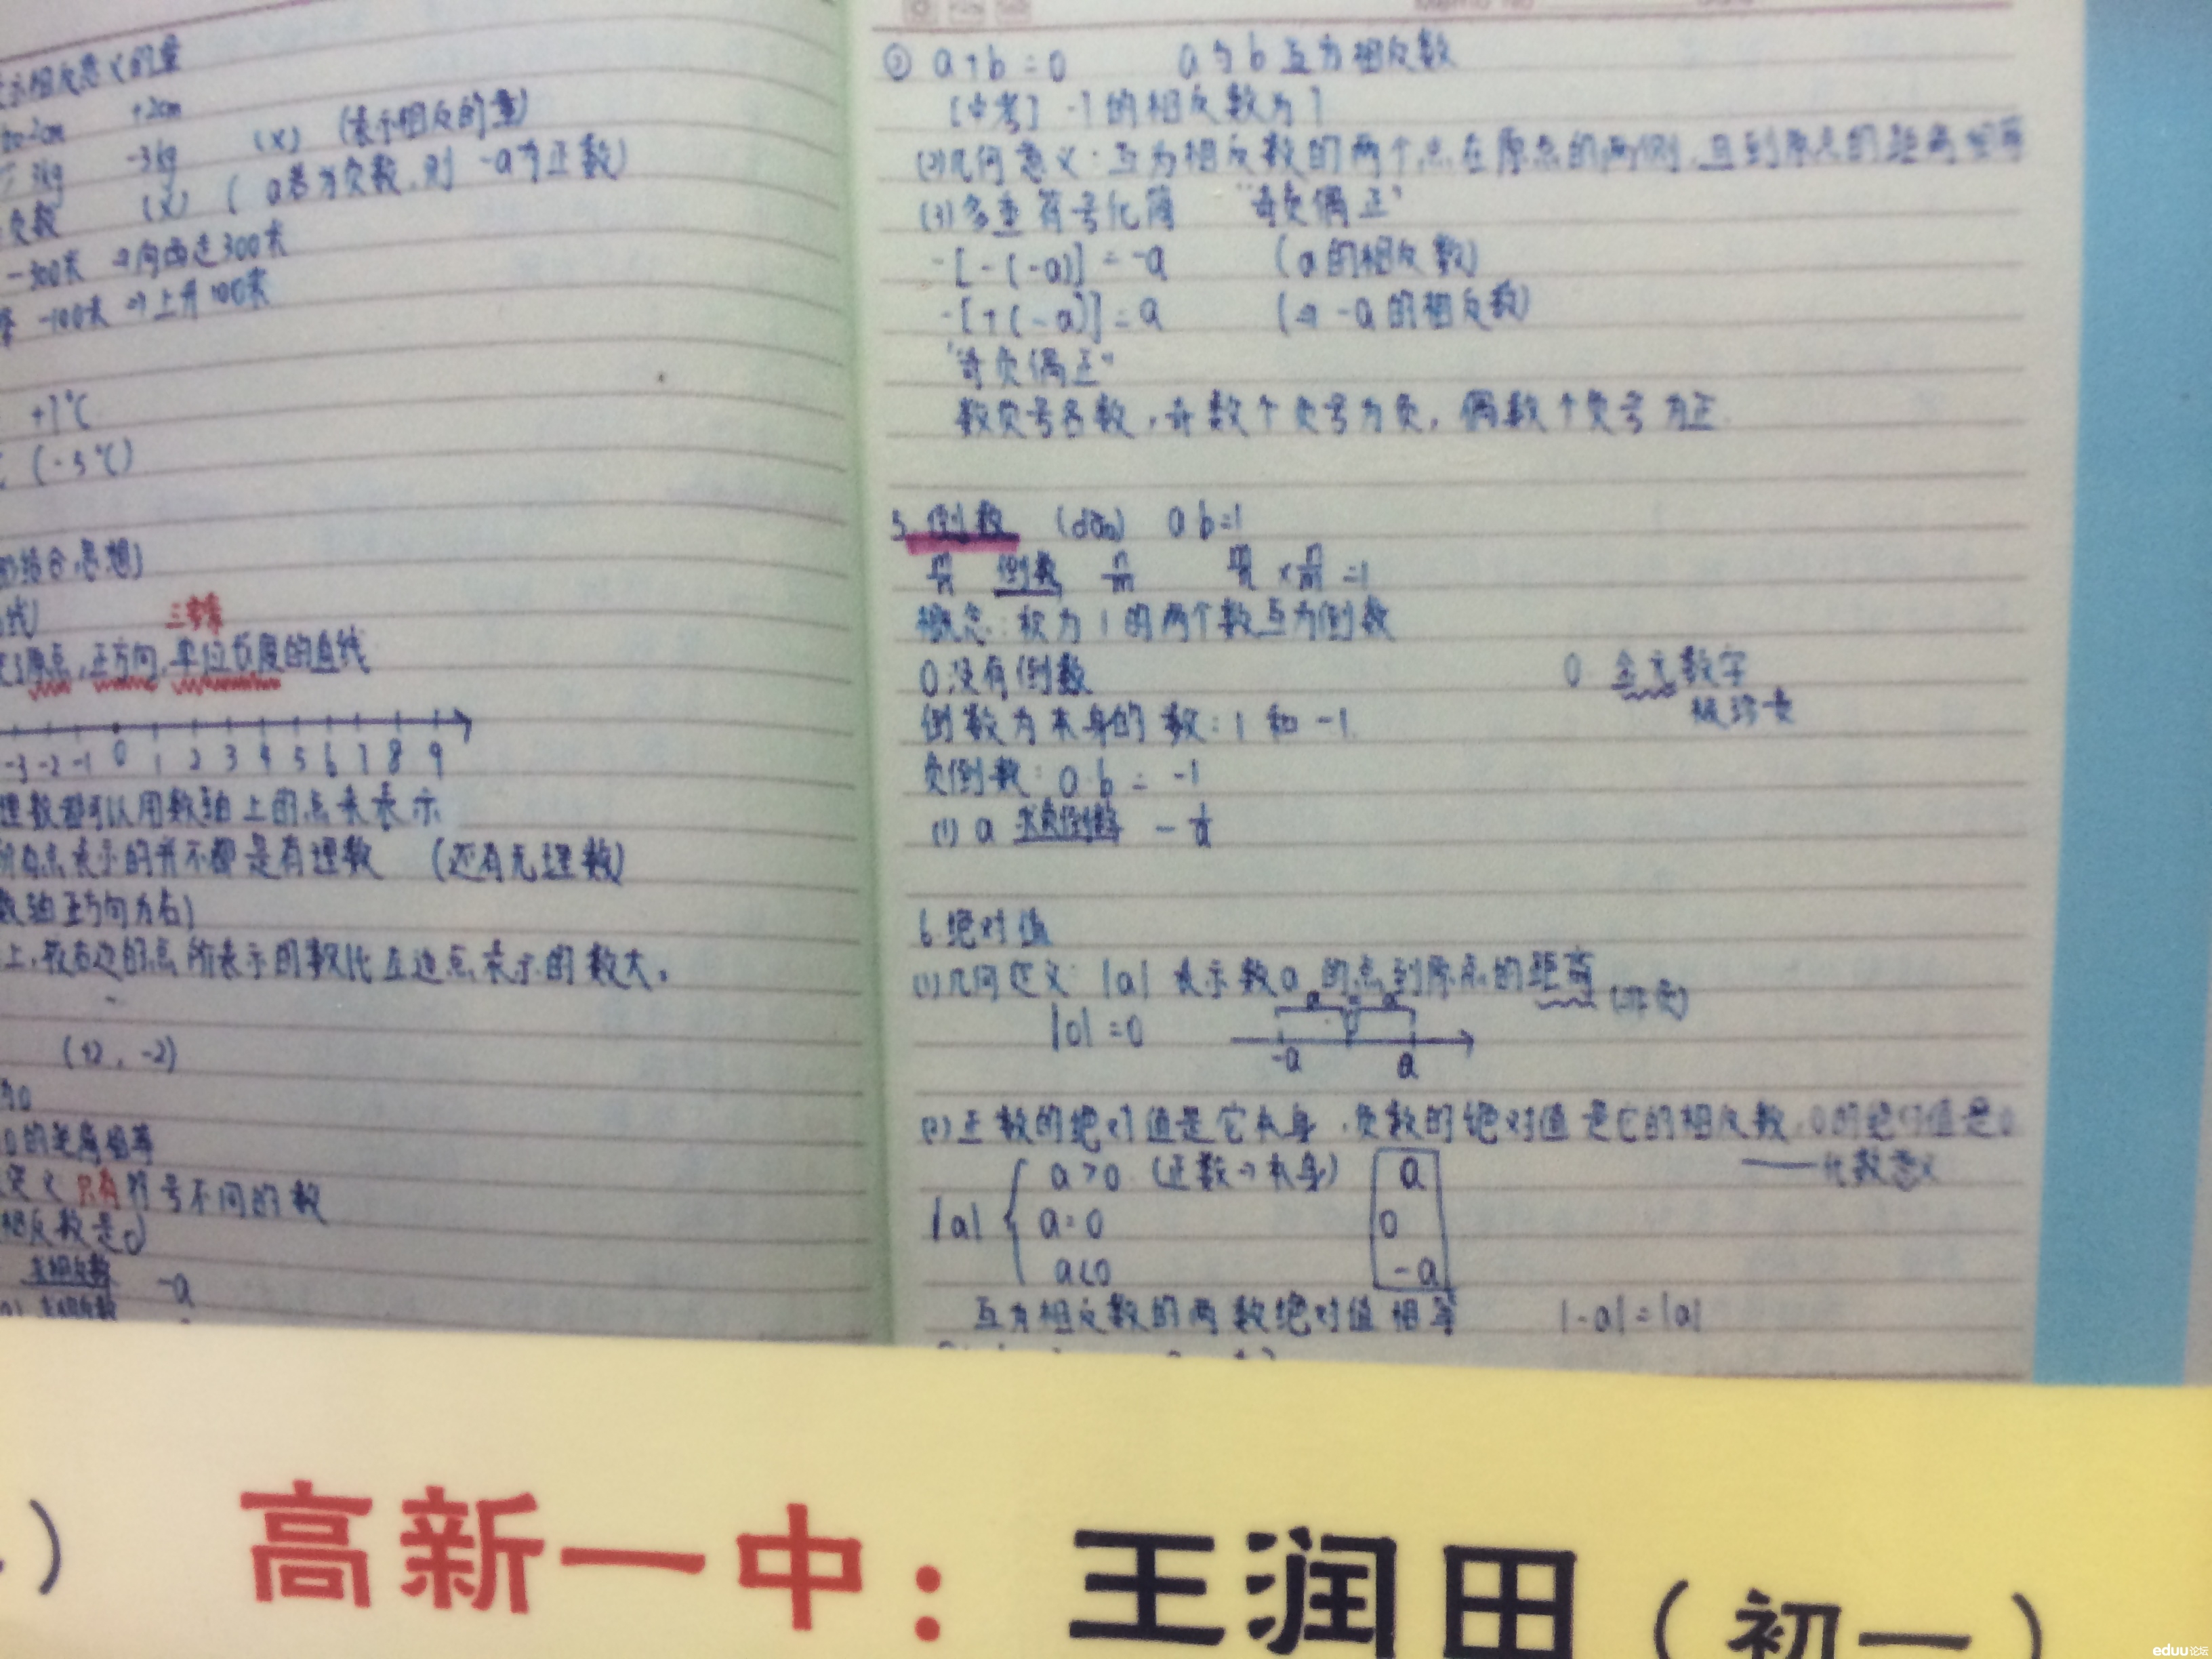 示相反意义的量
+2cm
3kg -3kg (×) (表示相反的量)
负数 (×) (a若为负数,则 -a为正数)
-300米 ⇒向西走300米
-100米 ⇒上升100米
+1℃
(-5℃)
结合思想)
线)
三要素
原点,正方向,单位长度的直线
-3 -2 -1 0 1 2 3 4 5 6 7 8 9
理数都可以用数轴上的点来表示
所有点表示的并不都是有理数 (还有无理数)
数轴正方向为右)
上,较右边的点所表示的数比左边点表示的数大。
(+2,-2)
为0
0的距离相等
定义 只有符号不同的数
相反数是0
求相反数 -a
求相反数
② a+b=0 a与b互为相反数
[中考] -1的相反数为1
(2)几何意义:互为相反数的两个点在原点的两侧,且到原点的距离相等
(3)多重符号化简 "奇负偶正"
-[-(-a)]=-a (a的相反数)
-[+(-a)]=a (⇒ -a的相反数)
"奇负偶正"
数负号各数,奇数个负号为负,偶数个负号为正.
5.倒数 (dào) ab=1
m/n 倒数 n/m m/n × n/m =1
概念:积为1的两个数互为倒数
0没有倒数 0
数字
倒数为本身的数:1和-1.
负倒数:a·b=-1
(1) a 求负倒数 -1/a
6.绝对值
(1)几何定义:|a|表示数a的点到原点的距离 (非负)
|0|=0
a a
-a 0 a
(2)正数的绝对值是它本身,负数的绝对值是它的相反数,0的绝对值是0
——代数意义
|a| { a>0 (正数→本身) a
a=0 0
a<0 -a
互为相反数的两数绝对值相等 |-a|=|a|
) 高新一中：王润田（初一）
eduu论坛